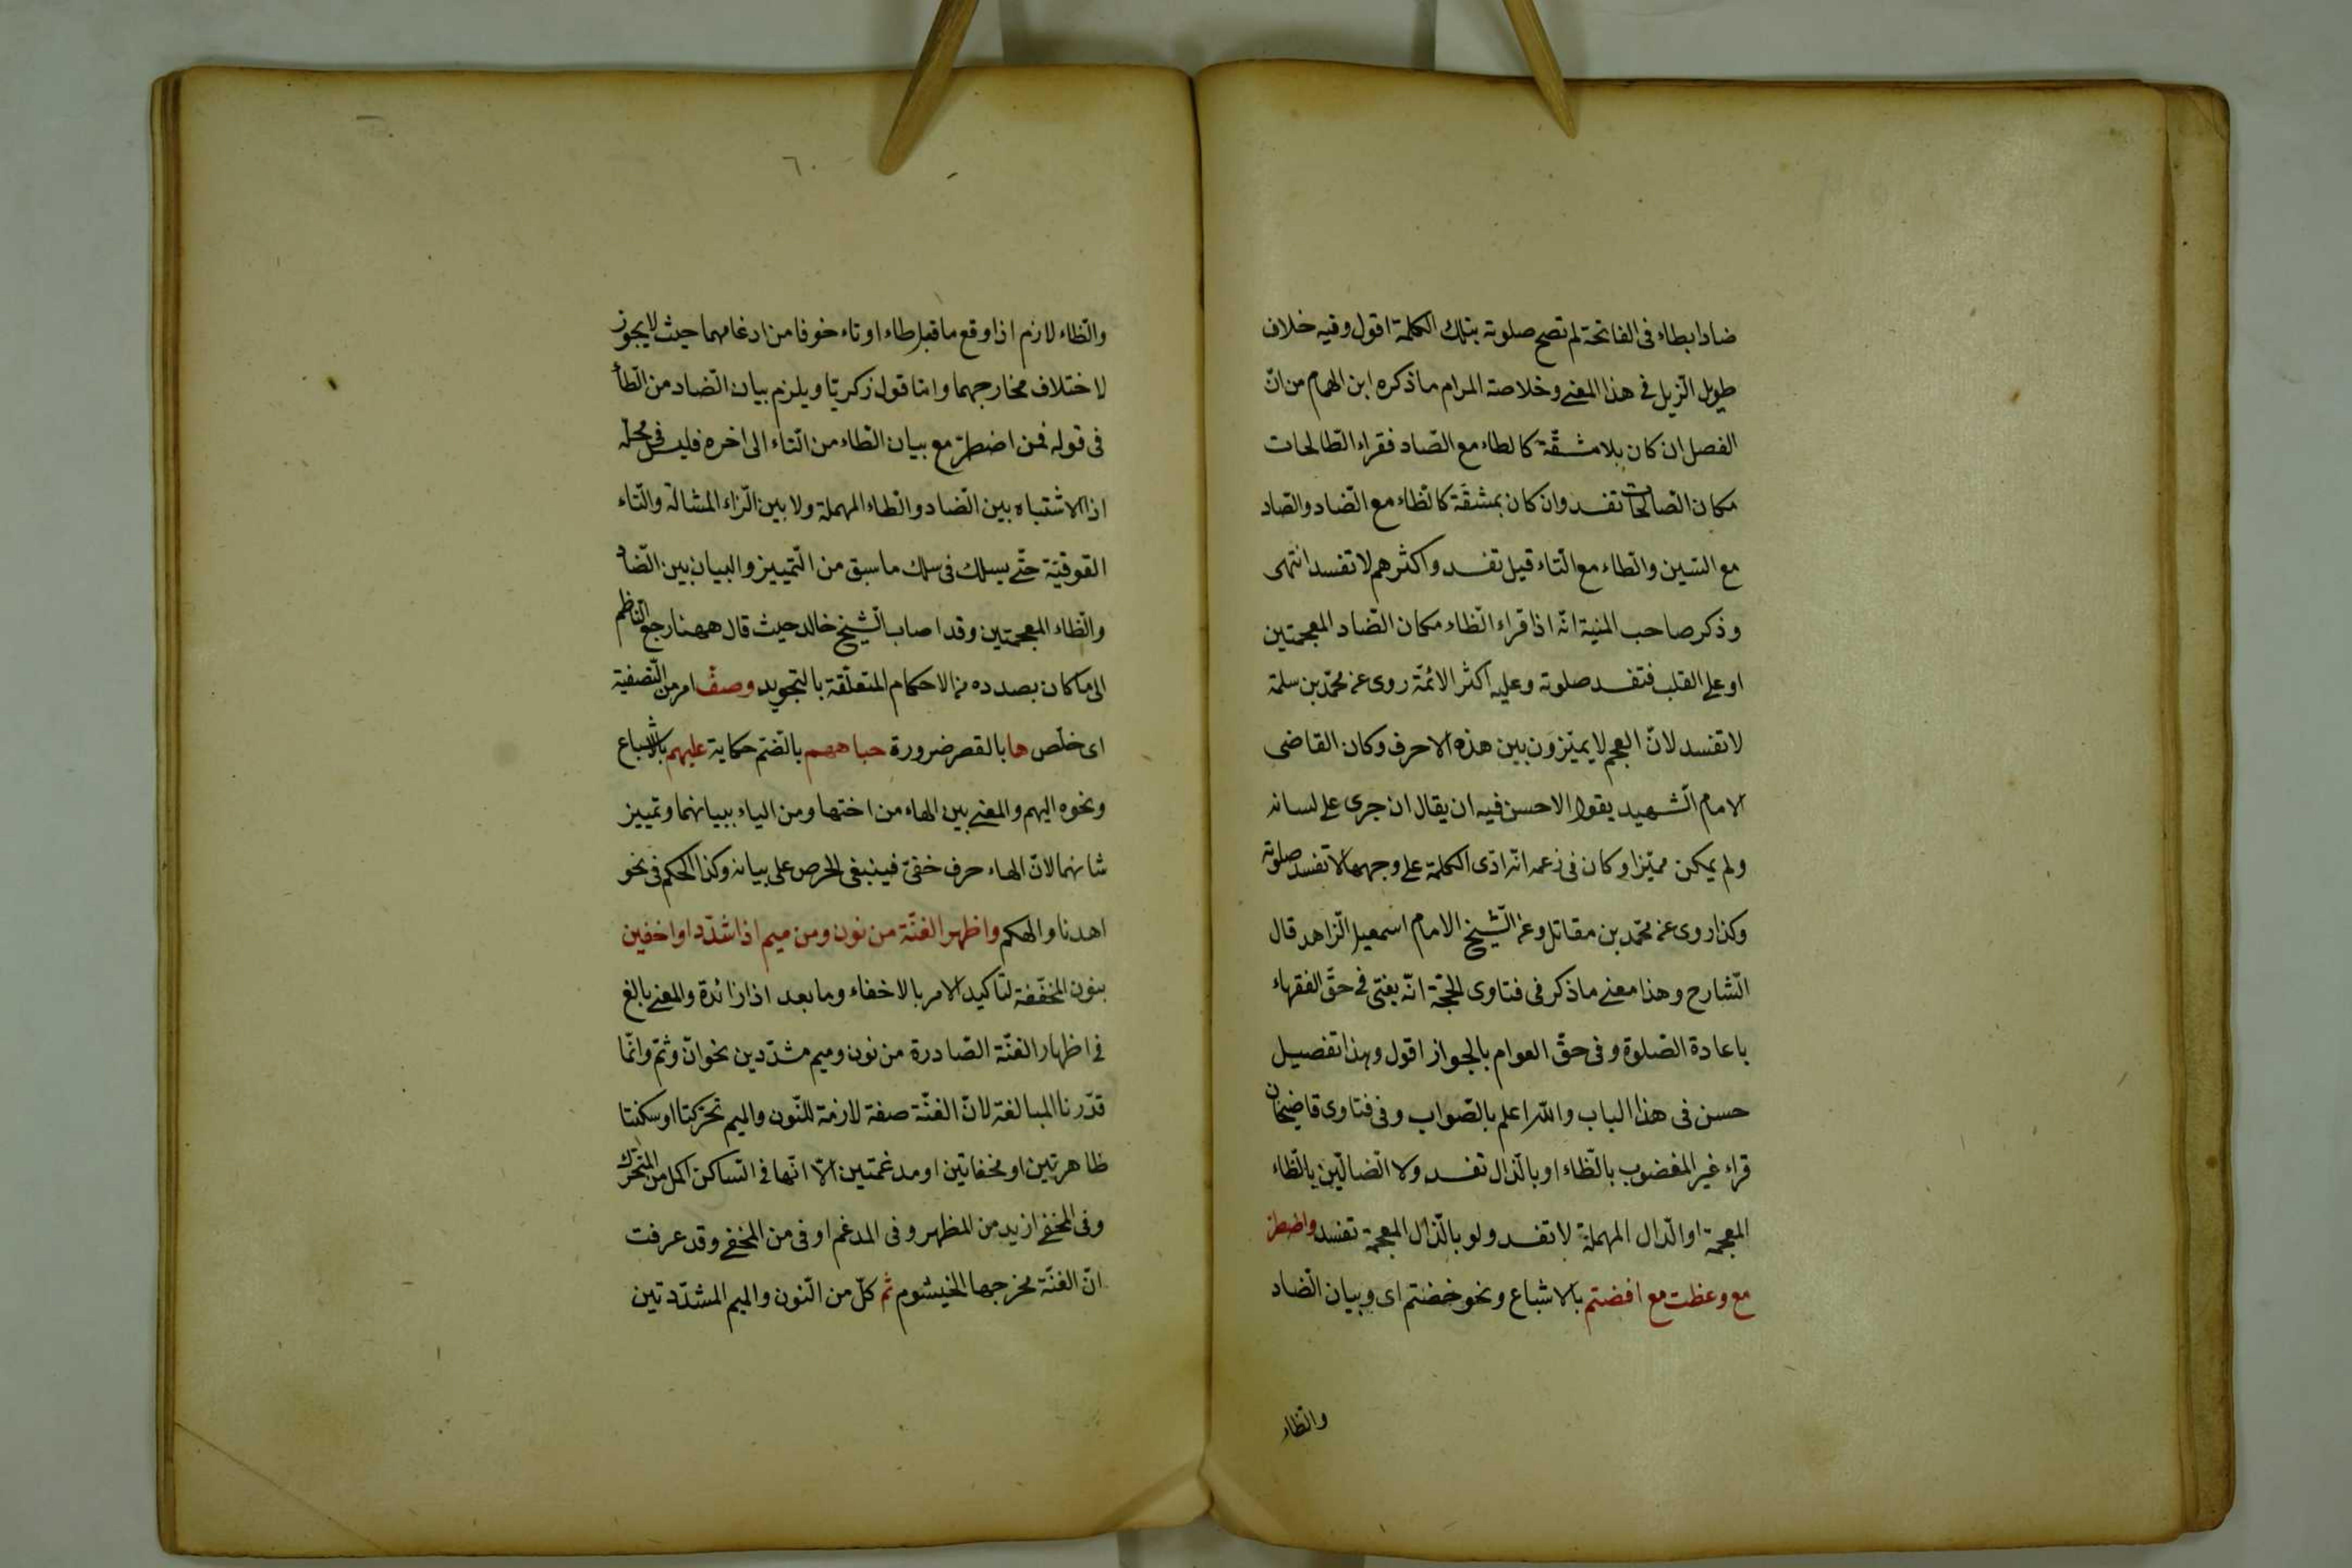 ضادا بطاء فى الفاتحة لم تصح صلوته بتلك الكلمة اقول وفيه خلاف
طويل الذيل فى هذا المعنى وخلاصة المرام ما ذكره ابن الهمام من انّ
الفصل ان كان بلا مشقّة كالطاء مع الصّاد فقراء الطالحات
مكان الصّالحات تفسد وان كان بمشقّة كالظاء مع الضاد والصّاد
مع السّين والطاء مع التّاء قيل تفسد واكثرهم لا تفسد انتهى
وذكر صاحب المنية انّه اذا قراء الظاء مكان الضاد المعجمتين
او على القلب فتفسد صلوته وعليه اكثر الائمّة روى عن محمّد بن سلمة
لا تفسد لانّ العجم لا يميّزون بين هذه الاحرف وكان القاضى
الامام الشّهيد يقول الاحسن فيه ان يقال ان جرى على لسانه
ولم يكن مميّزا وكان فى زعمه انّه ادّى الكلمة على وجهها لا تفسد صلوته
وكذا روى عن محمّد بن مقاتل وعن الشّيخ الامام اسمعيل الزّاهد قال
الشّارح وهذا معنى ما ذكر فى فتاوى الحجّة انّه يفتى فى حقّ الفقهاء
باعادة الصّلوة وفى حقّ العوام بالجواز اقول وهذا تفصيل
حسن فى هذا الباب والله اعلم بالصّواب وفى فتاوى قاضيخان
قراء غير المغضوب بالظّاء او بالذّال تفسد ولا الضالّين بالظّاء
المعجمة او الدّال المهملة لا تفسد ولو بالذّال المعجمة تفسد واضطرّ
مع وعظت مع افضتم بالاشباع ونحو خضتم اى وبيان الضّاد
والظاء
٦٠
والظّاء لازم اذا وقع ما قبل طاء او تاء خوفا من ادغامهما حيث لا يجوز
لاختلاف مخارجهما وامّا قول زكريّا ويلزم بيان الضّاد من الطّأ
فى قوله فمن اضطرّ مع بيان الظاء من التاء الى اخره فليس فى محلّه
اذ الاشتباه بين الضّاد والطاء المهملة ولا بين الزّاء المشالة والتّاء
الفوقيّة حتّى يسلك فى سلك ما سبق من التّمييز والبيان بين الضّاد
والظّاء المعجمتين وقد اصاب الشّيخ خالد حيث قال ههنا رجع النّاظم
الى ما كان بصدده من الاحكام المتعلّقة بالتجويد وصفّ امر من التّصفية
اى خلّص ها بالقصر ضرورة جباههم بالضّم حكاية عليهم بالاشباع
ونحوه اليهم والمعنى بين الهاء من اختها ومن الياء ببيانهما وتمييز
شانهما لانّ الهاء حرف خفىّ فينبغى الحرص على بيانه وكذا الحكم فى نحو
اهدنا والهكم واظهر الغنّة من نون ومن ميم اذا شدّدا واخفين
بنون المخفّفة لتاكيد الامر بالاخفاء وما بعد اذا زائدة والمعنى بالغ
فى اظهار الغنّة الصّادرة من نون وميم مشدّدين نحو انّ وثمّ وانّما
قدّرنا المبالغة لانّ الغنّة صفة لازمة للنّون والميم تحرّكتا او سكنتا
ظاهرتين او مخفاتين او مدغمتين الاّ انّها فى السّاكن اكمل من المتحرّك
وفى المخفى ازيد من المظهر وفى المدغم اوفى من المخفى وقد عرفت
انّ الغنّة مخرجها الخيشوم ثمّ كلّ من النّون والميم المشدّدتين